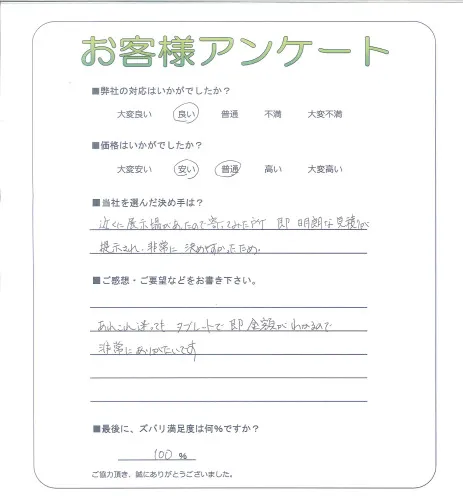 お客様アンケート
■弊社の対応はいかがでしたか？
大変良い 良い 普通 不満 大変不満
■価格はいかがでしたか？
大変安い 安い 普通 高い 大変高い
■当社を選んだ決め手は？
近くに展示場があったので寄ってみた所 即 明朗な見積りが
提示され、非常に 決めやすかったため。
■ご感想・ご要望などをお書き下さい。
あれこれ迷っても タブレットで 即 金額が わかるので
非常にありがたいです
■最後に、ズバリ満足度は何％ですか？
100 ％
ご協力頂き、誠にありがとうございました。